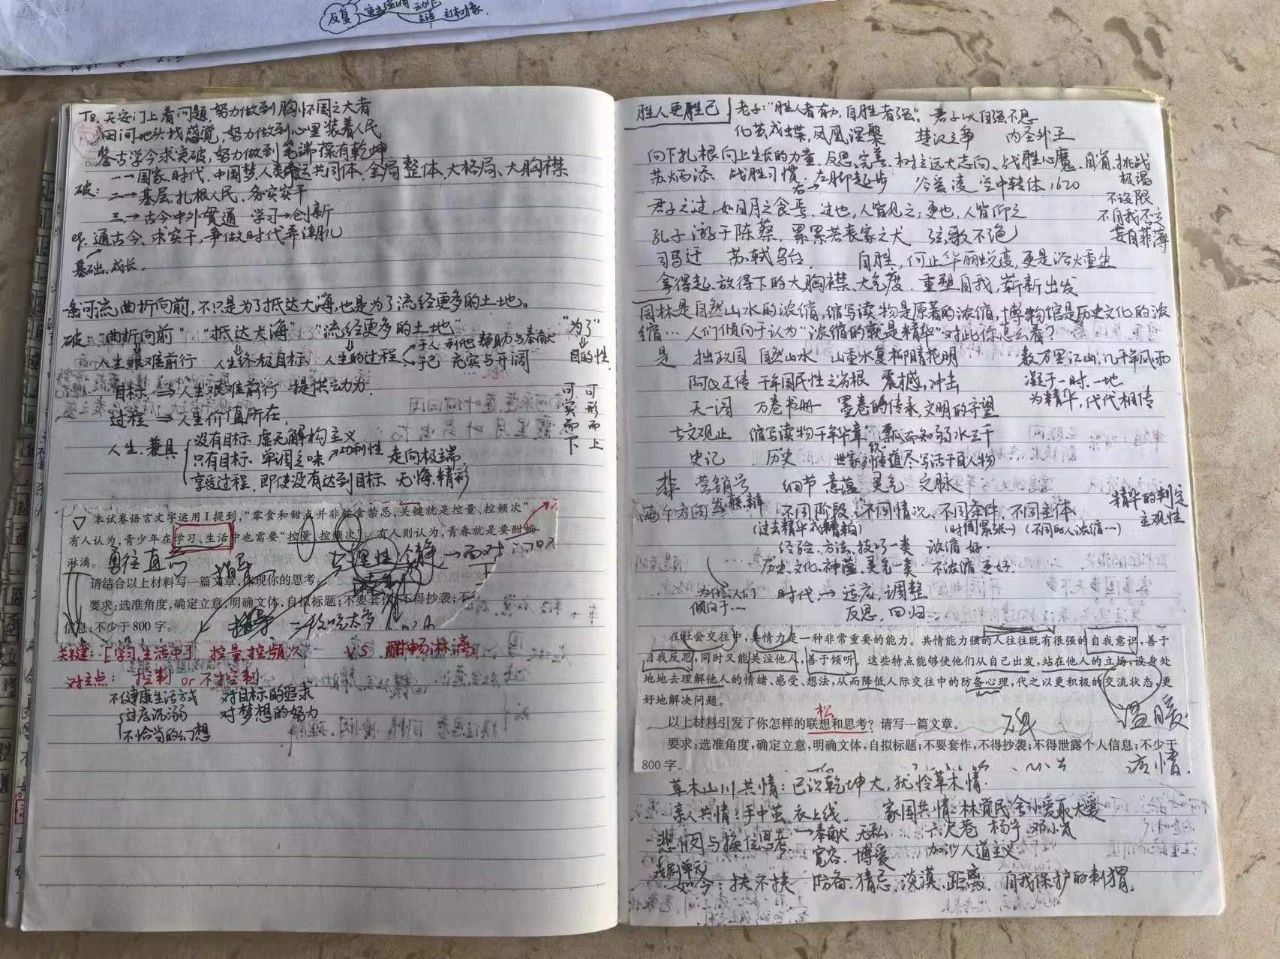 反复
T8. 天安门上看问题 努力做到胸怀国之大者
田间地头找感觉，努力做到心里装着人民
鉴古学今求突破，努力做到笔端操有乾坤
破：一→国家、时代、中国梦、人类命运共同体、全局整体、大格局、大胸襟
二→基层、扎根人民、务实实干
三→古今中外贯通 学习→创新
通古今、求实干，争做时代弄潮儿
基础，成长。
条河流，曲折向前，不只是为了抵达大海，也是为了流经更多的土地。
破 "曲折向前" "抵达大海" "流经更多的土地" "为了"
人生艰难前行 人生终极目标 人生的过程 于人 利他 帮助与奉献 目的性
于己 充实与开阔
目标→与人生艰难前行 提供动力 可实而下 可形而上
过程→人生价值所在，
人生，兼具
没有目标，虚无解构主义
只有目标、单调乏味 功利性 走向极端
享受过程，即使没有达到目标 无悔、精彩
▽ 本试卷语言文字运用Ⅰ提到，"零食和甜点并非饮食禁忌，关键就是控量、控频次"
有人认为，青少年在学习、生活中也需要"控量、控频次"，有人则认为，青春就是要酣畅
淋漓。
勇往直前
理性 冷静→面对
请结合以上材料写一篇文章，体现你的思考。
要求：选准角度，确定立意，明确文体，自拟标题；不要套作，不得抄袭；不
信息；不少于 800 字。
关键：[学习、生活中] 控量、控频次 VS 酣畅淋漓
对立点： 控制 or 不控制
不健康生活方式 对目标的追求
过度沉溺 对梦想的努力
不恰当的幻想
胜人更胜己 老子："胜人者有力，自胜者强"。君子以自强不息
化茧成蝶，凤凰涅槃 楚汉之争 内圣外王
向下扎根向上生长的力量、反思、完善、树立远大志向、战胜心魔、自省、挑战
极端
苏炳添 战胜习惯，右→左脚起步 谷爱凌 空中转体 1620
不设限
君子之过，如日月之食焉，过也，人皆见之；更也，人皆仰之
不自我否定
孔子 游于陈蔡，累累若丧家之犬 弦歌不绝
妄自菲薄
司马迁 苏轼 乌台 自胜，何止华丽蜕变，更是浴火重生
拿得起，放得下的大胸襟、大气度 重塑自我，崭新出发
园林是自然山水的浓缩，缩写读物是原著的浓缩，博物馆是历史文化的浓
缩… 人们倾向于认为"浓缩的就是精华"对此你怎么看？
是 拙政园 自然山水 山重水复柳暗花明 数万里江山，几千年风雨
阿Q正传 千年国民性之劣根 震撼，冲击 凝于一时、一地
天一阁 万卷书册 墨香的传承，文明的守望 为精华，代代相传
古文观止 缩写读物千年华章，瓢饮而知弱水三千
史记 历史 世家列传道尽写活千百人物
非 营销号 细节 意蕴 灵气 文脉
两个方面 →辩 不同阶段、不同情况、不同条件、不同主体 精华的判定
(过去精华 或糟粕) (时间紧张…) (不同的人浓缩…) 主观性
经验、方法、技巧一类 浓缩好.
历史、文化、神蕴、灵气一类 不浓缩更好.
为什么人们 时代→适应、调整
倾向于… 反思、回归
在社会交往中，共情力是一种非常重要的能力。共情能力强的人往往既有很强的自我意识，善于
自我反思，同时又能关注他人，善于倾听，这些特点能够使他们从自己出发，站在他人的立场，设身处
地地去理解他人的情绪、感受、想法，从而降低人际交往中的防备心理，代之以更积极的交流状态，更
好地解决问题。
松
以上材料引发了你怎样的联想和思考？请写一篇文章。
温暖
要求：选准角度，确定立意，明确文体，自拟标题；不要套作，不得抄袭；不得泄露个人信息；不少于
800 字。
草木山川共情：已识乾坤大，犹怜草木情.
亲人共情：手中茧 衣上线 家国共情：林觉民 舍小爱取大爱
悲悯与换位思考→奉献 无私 六尺巷 杨宁、邓小岚
宽容、博爱 加沙人道主义
如今：扶不扶 防备、猜忌、淡漠、距离、自我保护的刺猬.